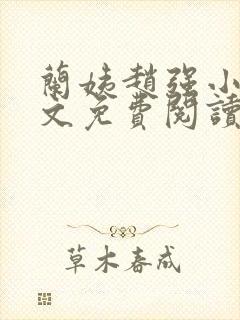 蘭姨趙強小
文免費閱讀
草木春成